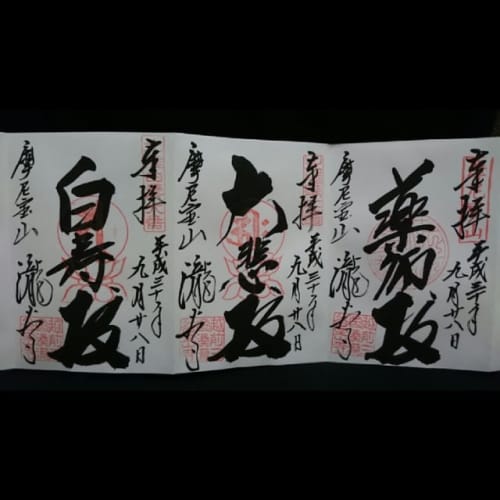 奉拝
平成三十年
九月廿八日
薬師殿
摩尼宝山
瀧谷寺
奉拝
平成三十年
九月廿八日
大悲殿
摩尼宝山
瀧谷寺
奉拝
平成三十年
九月廿八日
白寿殿
摩尼宝山
瀧谷寺